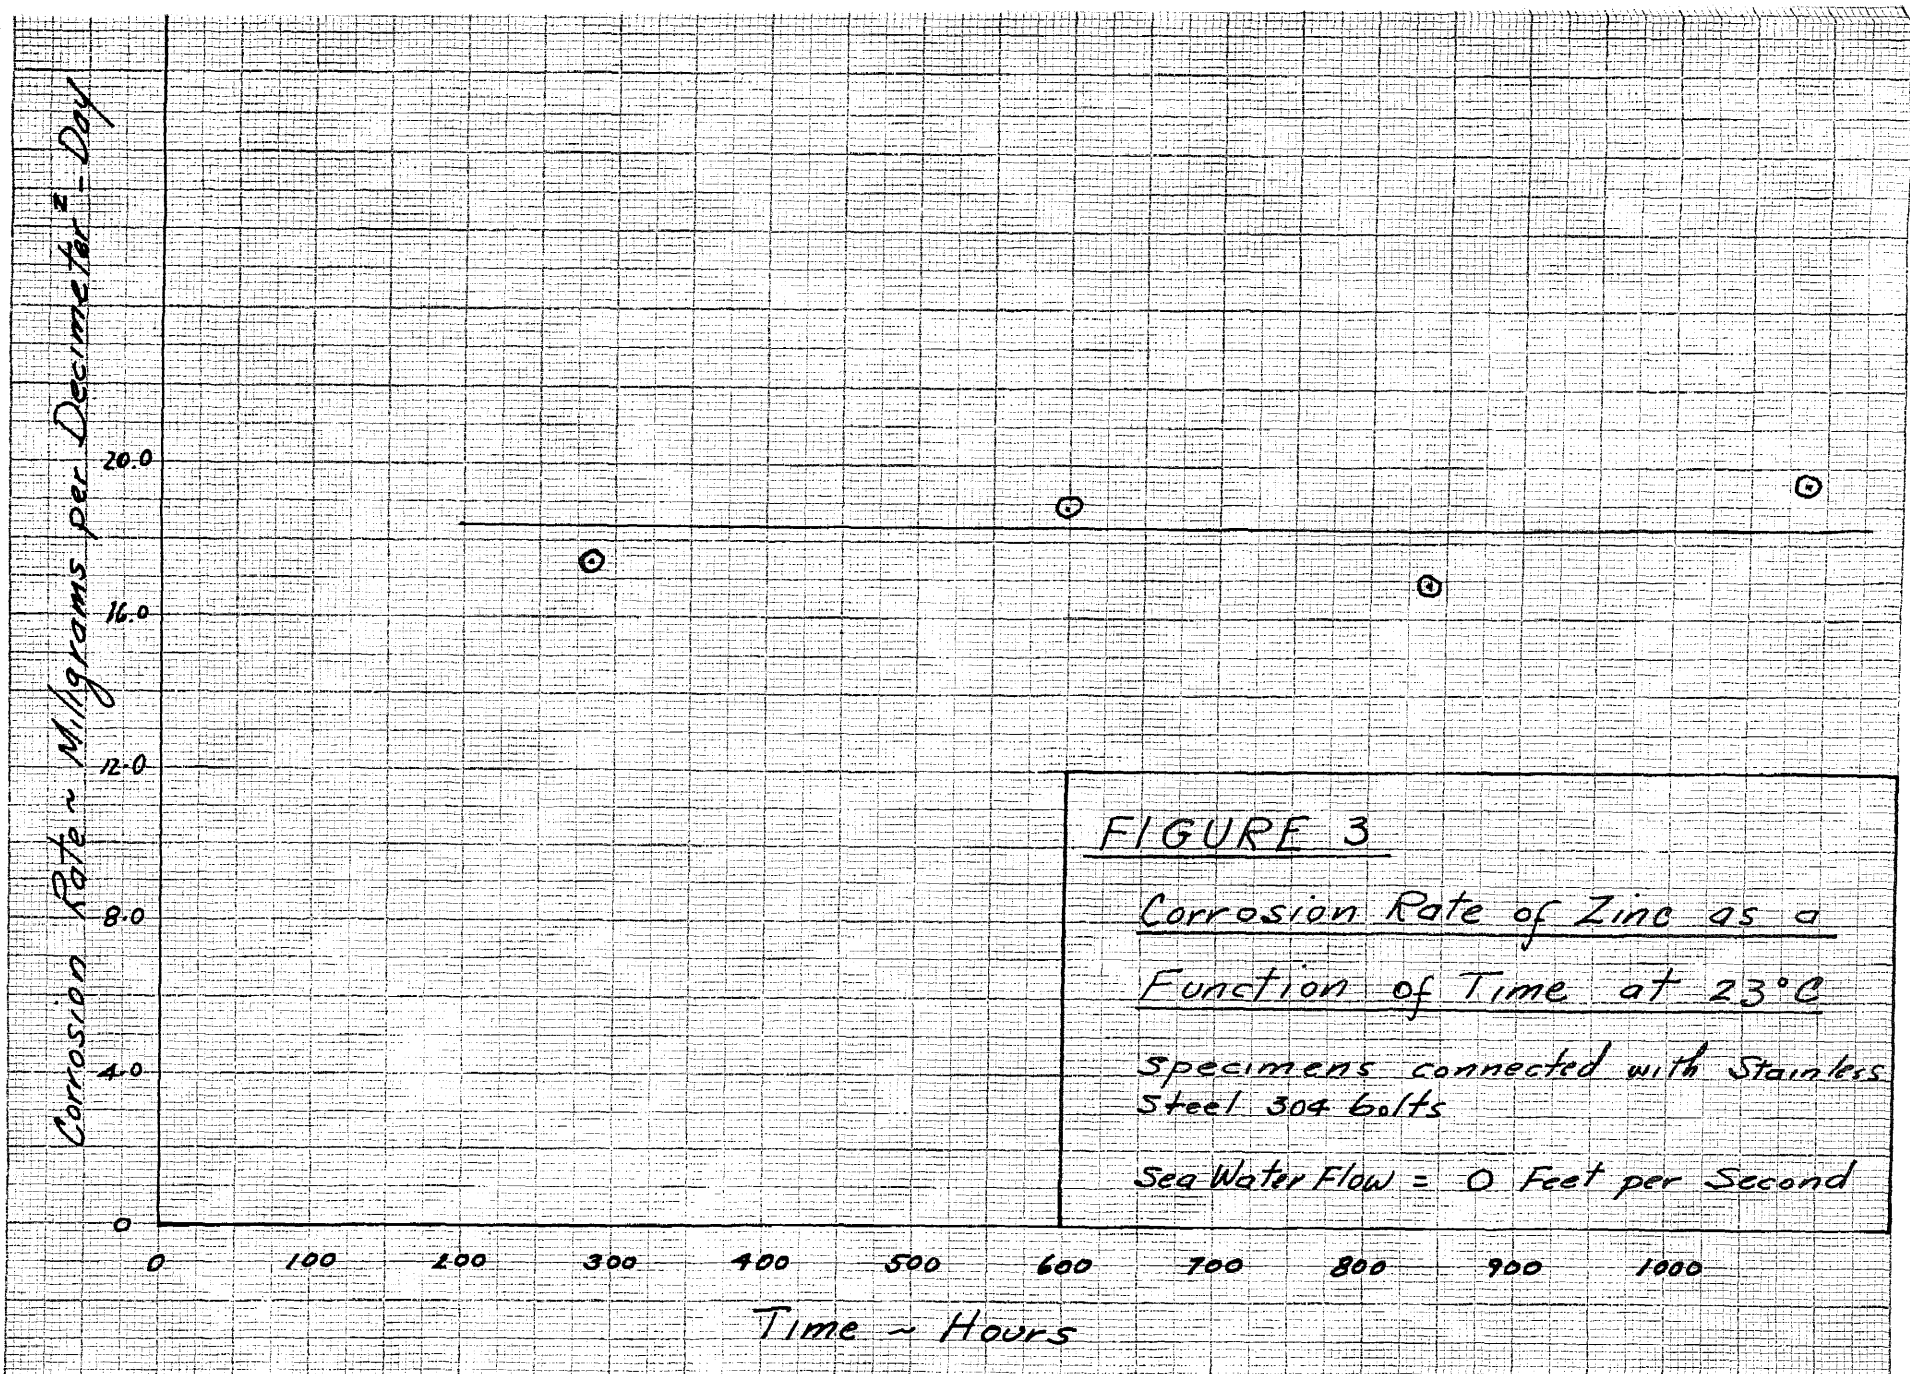 Corrosion Rate ~ Milligrams per Decimeter² - Day
20.0
16.0
12.0
8.0
4.0
0
0 100 200 300 400 500 600 700 800 900 1000
Time ~ Hours
FIGURE 3
Corrosion Rate of Zinc as a
Function of Time at 23°C
Specimens connected with Stainless
Steel 304 bolts
Sea Water Flow = 0 Feet per Second